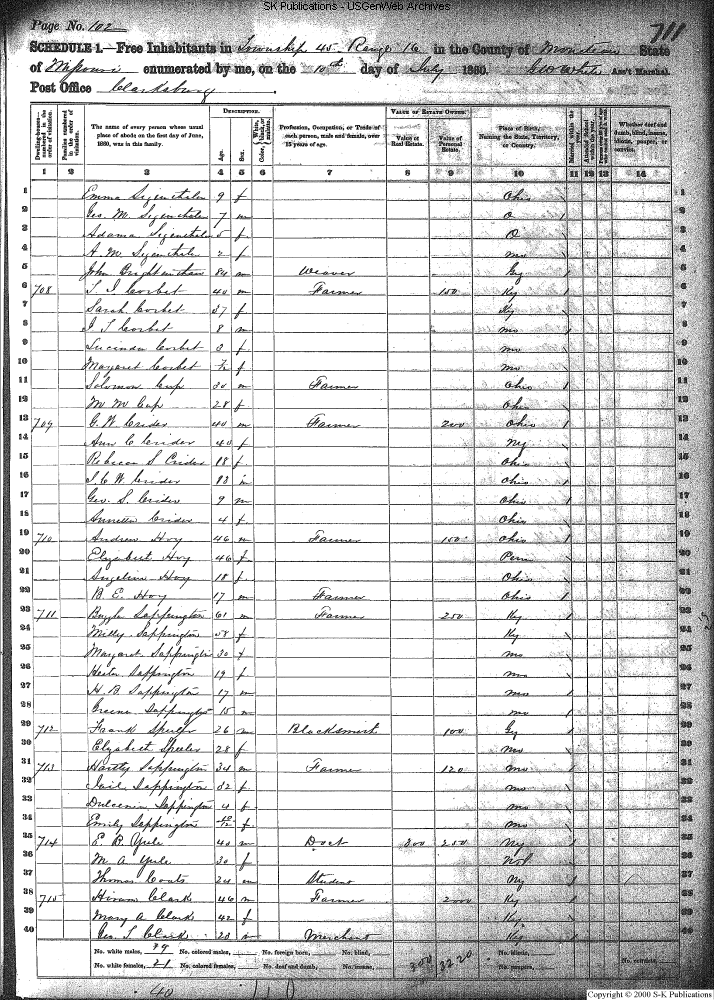 SK Publications - USGenWeb Archives
Page No. 102
711
SCHEDULE 1.—Free Inhabitants in Township 45 Range 16 in the County of State
of Missouri enumerated by me, on the 10th day of July 1860. Ass't Marshal.
Post Office Clarksburg
DESCRIPTION. VALUE OF ESTATE OWNED.
The name of every person whose usual place of abode on the first day of June, 1860, was in this family.
Age. Sex.
Profession, Occupation, or Trade of each person, male and female, over 15 years of age.
Value of Real Estate. Value of Personal Estate.
Place of Birth, Naming the State, Territory, or Country.
Whether deaf and dumb, blind, insane, idiotic, pauper, or convict.
1 2 3 4 5 6 7 8 9 10 11 12 13 14
1 Emma 9 f Ohio
2 Geo. M. 7 m O
3 Adama 5 f O
4 A. M. 2 f Mo
5 John 84 m Weaver Ky
6 708 S. J. Corbet 40 m Farmer 150 Ky
7 Sarah Corbet 37 f Ky
8 J. T. Corbet 8 m Mo
9 Lucinda Corbet 3 f Mo
10 Margaret Corbet f Mo
11 Solomon Cup 30 m Farmer Ohio
12 M M Cup 28 f Ohio
13 709 G. W. Crider 40 m Farmer 200 Ohio
14 Ann C Crider 40 f Ny
15 Rebecca S Crider 18 f Ohio
16 J. C. W Crider 13 m Ohio
17 Geo. S. Crider 9 m Ohio
18 Annetta Crider 4 f Ohio
19 710 Andrew Hoy 46 m Farmer 150 Ohio
20 Elizabeth Hoy 46 f Penn
21 Angelina Hoy 18 f Ohio
22 B. E. Hoy 17 m Farmer Ohio
23 711 Sappington 61 m Farmer 250 Ky
24 Milly Sappington 58 f Ky
25 Margaret Sappington 30 f Mo
26 Hester Sappington 19 f Mo
27 H. B. Sappington 17 m Mo
28 Greene Sappington 15 m Mo
29 712 Frank Speeler 26 m Blacksmith 100 Gy
30 Elizabeth Speeler 28 f Mo
31 713 Hartly Sappington 34 m Farmer 120 Mo
32 Sappington 32 f Mo
33 Dulcenia Sappington 4 f Mo
34 Emily Sappington f Mo
35 714 E. B. Yule 40 m Doct 300 250 Ny
36 M A Yule 30 f
37 Thomas Coats 24 m Student Ny
38 715 Hiram Clark 46 m Farmer 2000 Ky
39 Mary A Clark 42 f Ky
40 Geo. S. Clark 23 m Merchant Ky
No. white males, 19 No. colored males, No. foreign born, No. blind, 300 3220 No. idiotic, No. convicts,
No. white females, 21 No. colored females, No. deaf and dumb, No. insane, No. paupers,
40
Copyright © 2000 S-K Publications